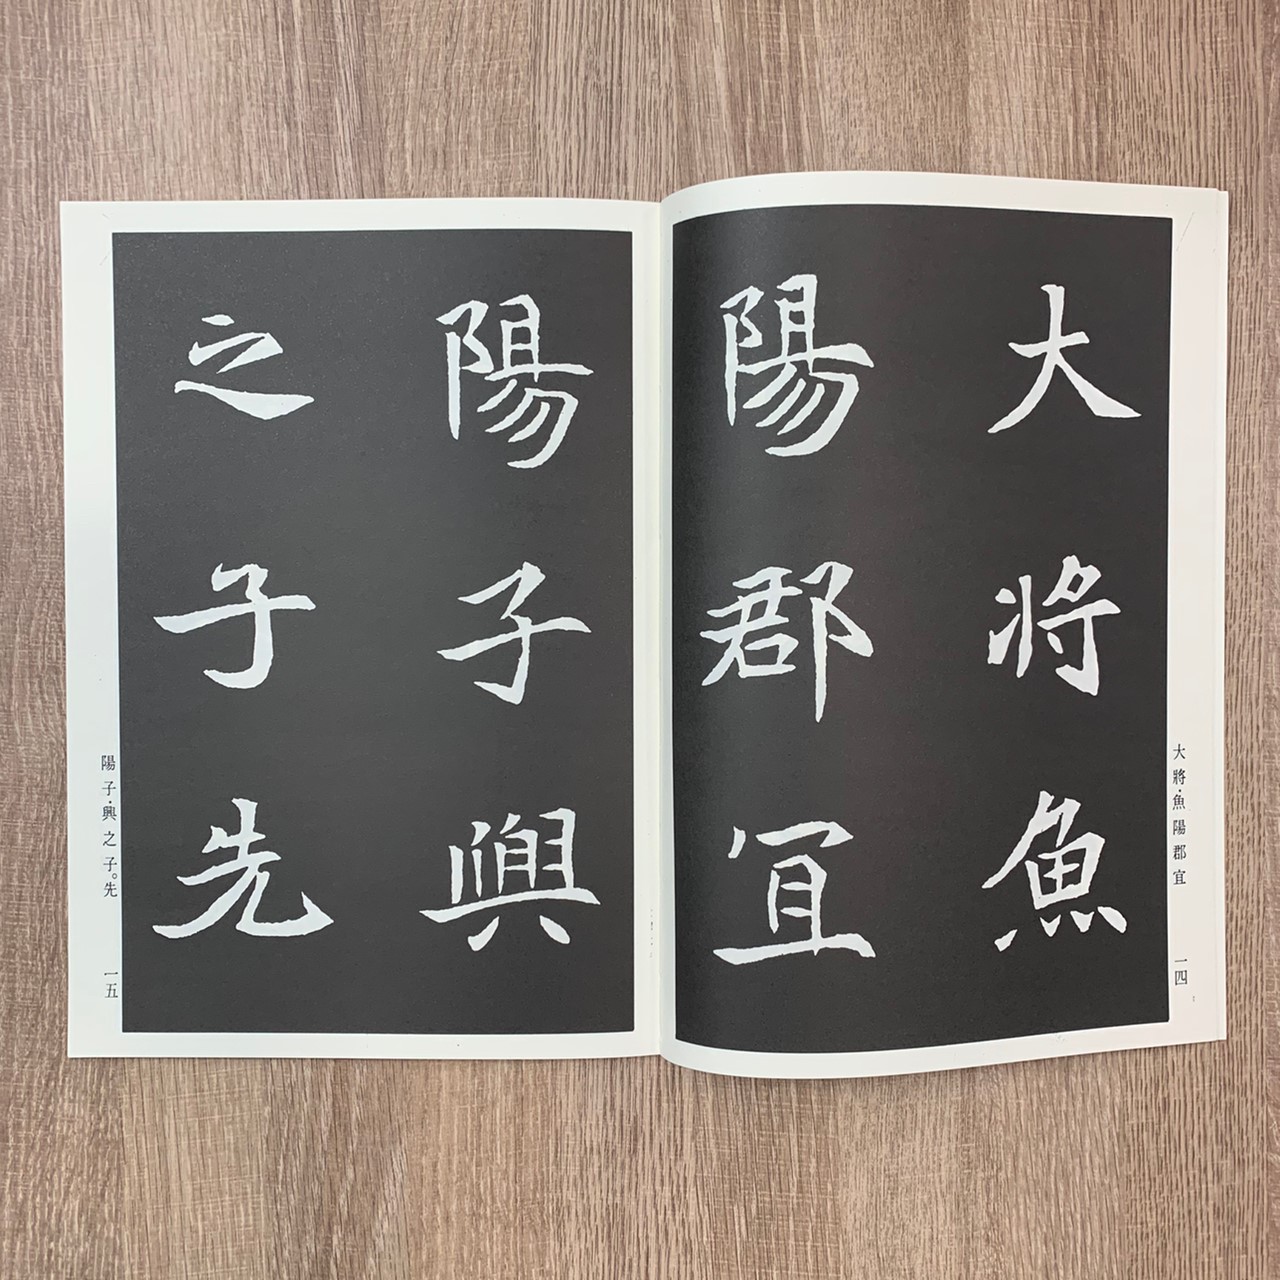 大将魚
陽郡冝
大將・魚陽郡宜
一四
陽子興
之子先
陽子・興之子。先
一五